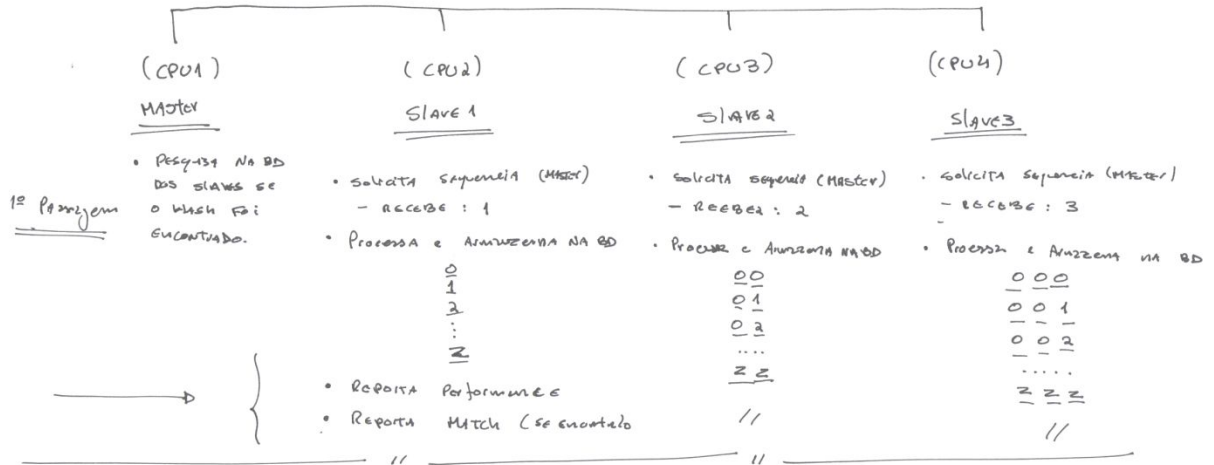 (CPU1) (CPU2) (CPU3) (CPU4)
Master Slave 1 Slave 2 Slave3
1ª Passagem
• Pesquisa na BD
dos slaves se
o hash foi
encontrado.
• Solicita sequencia (Master)
- Recebe : 1
• Processa e Armazena na BD
0
1
2
⋮
Z
• Reporta Performance
• Reporta Match (se encontrado
• Solicita sequencia (Master)
- Recebe : 2
• Processa e Armazena na BD
0 0
0 1
0 2
....
Z Z
//
• Solicita sequencia (Master)
- Recebe : 3
• Processa e Armazena na BD
0 0 0
0 0 1
0 0 2
.....
Z Z Z
//
// //